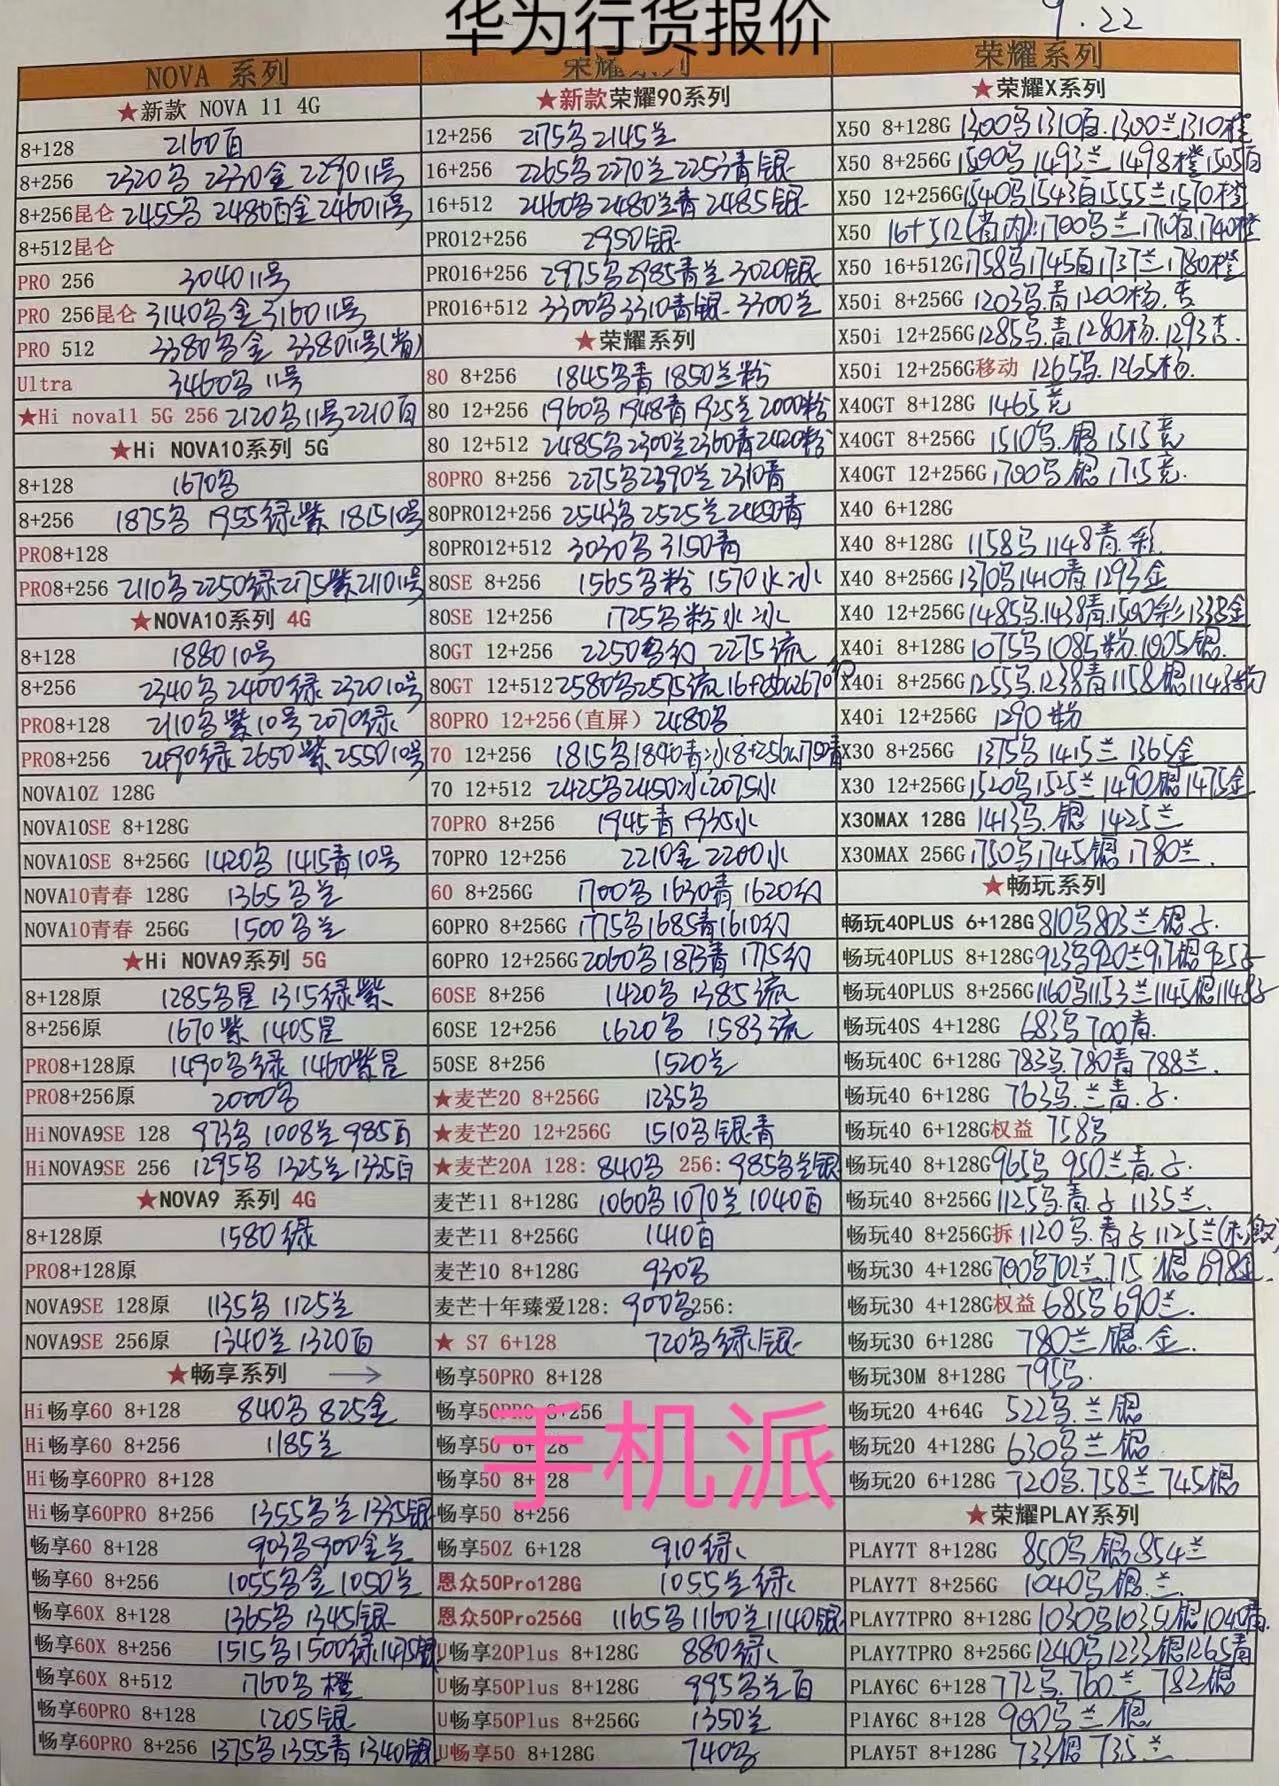 华为行货报价
9.22
NOVA 系列
★新款 NOVA 11 4G
8+128 2160百
8+256 2320 2330金 2290 11号
8+256昆仑 2455 2480百金 2460 11号
8+512昆仑
PRO 256 3040 11号
PRO 256昆仑 3140 金 3160 11号
PRO 512 3380 金 3380 11号
Ultra 3460 11号
★Hi nova11 5G 256 2120 11号 2210百
★Hi NOVA10系列 5G
8+128 1670
8+256 1875 1955绿紫 1815 10号
PRO8+128
PRO8+256 2110 2250绿 2175紫 2110
★NOVA10系列 4G
8+128 1880 10号
8+256 2340 2400绿 2320 10号
PRO8+128 2110 紫 10号 2070绿
PRO8+256 2490绿 2650紫 2550 10号
NOVA10Z 128G
NOVA10SE 8+128G
NOVA10SE 8+256G 1420 1415青 10号
NOVA10青春 128G 1365 兰
NOVA10青春 256G 1500 兰
★Hi NOVA9系列 5G
8+128原 1285 星 1315绿紫
8+256原 1670紫 1405星
PRO8+128原 1490 绿 1460紫星
PRO8+256原 2000
HiNOVA9SE 128 973 1008兰 985百
HiNOVA9SE 256 1295 1325兰 1335百
★NOVA9 系列 4G
8+128原 1580绿
PRO8+128原
NOVA9SE 128原 1135 1125兰
NOVA9SE 256原 1340兰 1320百
★畅享系列 →
Hi畅享60 8+128 840 825金
Hi畅享60 8+256 1185兰
Hi畅享60PRO 8+128
Hi畅享60PRO 8+256 1355 兰 1335银
畅享60 8+128 903 900金兰
畅享60 8+256 1055 金 1050兰
畅享60X 8+128 1365 1345银
畅享60X 8+256 1515 1500绿 1475银
畅享60X 8+512 1760 橙
畅享60PRO 8+128 1205银
畅享60PRO 8+256 1375 1355青 1340银
荣耀系列
★新款荣耀90系列
12+256 2175 2145兰
16+256 2265 2270兰 2253青银
16+512 2460 2480兰青 2485银
PRO12+256 2950银
PRO16+256 2975 2985青兰 3020银
PRO16+512 3300 3310青银 3300兰
★荣耀系列
80 8+256 1845 青 1850兰粉
80 12+256 1960 1948青 1925兰 2000粉
80 12+512 2485 2300兰 2360青 2420粉
80PRO 8+256 2275 2390兰 2310青
80PRO12+256 2543 2525兰 2450青
80PRO12+512 3030 3150青
80SE 8+256 1565 粉 1570水冰
80SE 12+256 1725 粉水冰
80GT 12+256 2250 幻 2275流
80GT 12+512 2580 2575流 16+256 2670
80PRO 12+256(直屏) 2480
70 12+256 1815 1840青冰 8+256 1750青
70 12+512 2425 2450冰 2075水
70PRO 8+256 1945青 1935水
70PRO 12+256 2210金 2200水
60 8+256G 1700 1630青 1620幻
60PRO 8+256G 1775 1685青 1610幻
60PRO 12+256G 2060 1873青 1775幻
60SE 8+256 1420 1385流
60SE 12+256 1620 1583流
50SE 8+256 1520兰
★麦芒20 8+256G 1235
★麦芒20 12+256G 1510 银青
★麦芒20A 128: 840 256: 985 兰银
麦芒11 8+128G 1060 1070兰 1040百
麦芒11 8+256G 1410百
麦芒10 8+128G 930
麦芒十年臻爱128: 900 256:
★ S7 6+128 720 绿银
畅享50PRO 8+128
畅享50PRO 8+256
畅享50 6+128
畅享50 8+128
畅享50 8+256
畅享50Z 6+128 910绿
恩众50Pro128G 1055兰绿
恩众50Pro256G 1165 1160兰 1140银
U畅享20Plus 8+128G 880绿
U畅享50Plus 8+128G 995 兰百
U畅享50Plus 8+256G 1350兰
U畅享50 8+128G 740
手机派
荣耀系列
★荣耀X系列
X50 8+128G 1300 1310百 1300兰 1310橙
X50 8+256G 1500 1493兰 1498橙 1505百
X50 12+256G 1540 1543百 1555兰 1570橙
X50 16+512 1700 兰 1710百 1740橙
X50 16+512G 1758 1745百 1737兰 1780橙
X50i 8+256G 1203 青 1200杨 杏
X50i 12+256G 1285 青 1280杨 1293杏
X50i 12+256G移动 1265 1265杨
X40GT 8+128G 1465竞
X40GT 8+256G 1510 银 1515竞
X40GT 12+256G 1700 银 1715竞
X40 6+128G
X40 8+128G 1158 1148青 彩
X40 8+256G 1370 1410青 1293金
X40 12+256G 1485 1438青 1500彩 1338金
X40i 8+128G 1075 1085粉 1005银
X40i 8+256G 1255 1238青 1158银 1143粉
X40i 12+256G 1290粉
X30 8+256G 1375 1415兰 1365金
X30 12+256G 1520 1525兰 1490银 1475金
X30MAX 128G 1413 银 1425兰
X30MAX 256G 1750 1745银 1780兰
★畅玩系列
畅玩40PLUS 6+128G 810 803兰银
畅玩40PLUS 8+128G 923 920兰 917银 925
畅玩40PLUS 8+256G 1160 1153兰 1145银 1148
畅玩40S 4+128G 683 700青
畅玩40C 6+128G 783 780青 788兰
畅玩40 6+128G 763 兰青
畅玩40 6+128G权益 758
畅玩40 8+128G 965 950兰青
畅玩40 8+256G 1125 青 1135兰
畅玩40 8+256G拆 1120 青 1125兰
畅玩30 4+128G 700 702兰 715银 698金
畅玩30 4+128G权益 685 690兰
畅玩30 6+128G 780兰银金
畅玩30M 8+128G 795
畅玩20 4+64G 522 兰银
畅玩20 4+128G 630 兰银
畅玩20 6+128G 720 758兰 745银
★荣耀PLAY系列
PLAY7T 8+128G 850 银 854兰
PLAY7T 8+256G 1040 银 兰
PLAY7TPRO 8+128G 1030 1035银 1040青
PLAY7TPRO 8+256G 1240 1233银 1265青
PLAY6C 6+128 772 760兰 782银
PlAY6C 8+128 900 兰 银
PLAY5T 8+128G 733银 735兰